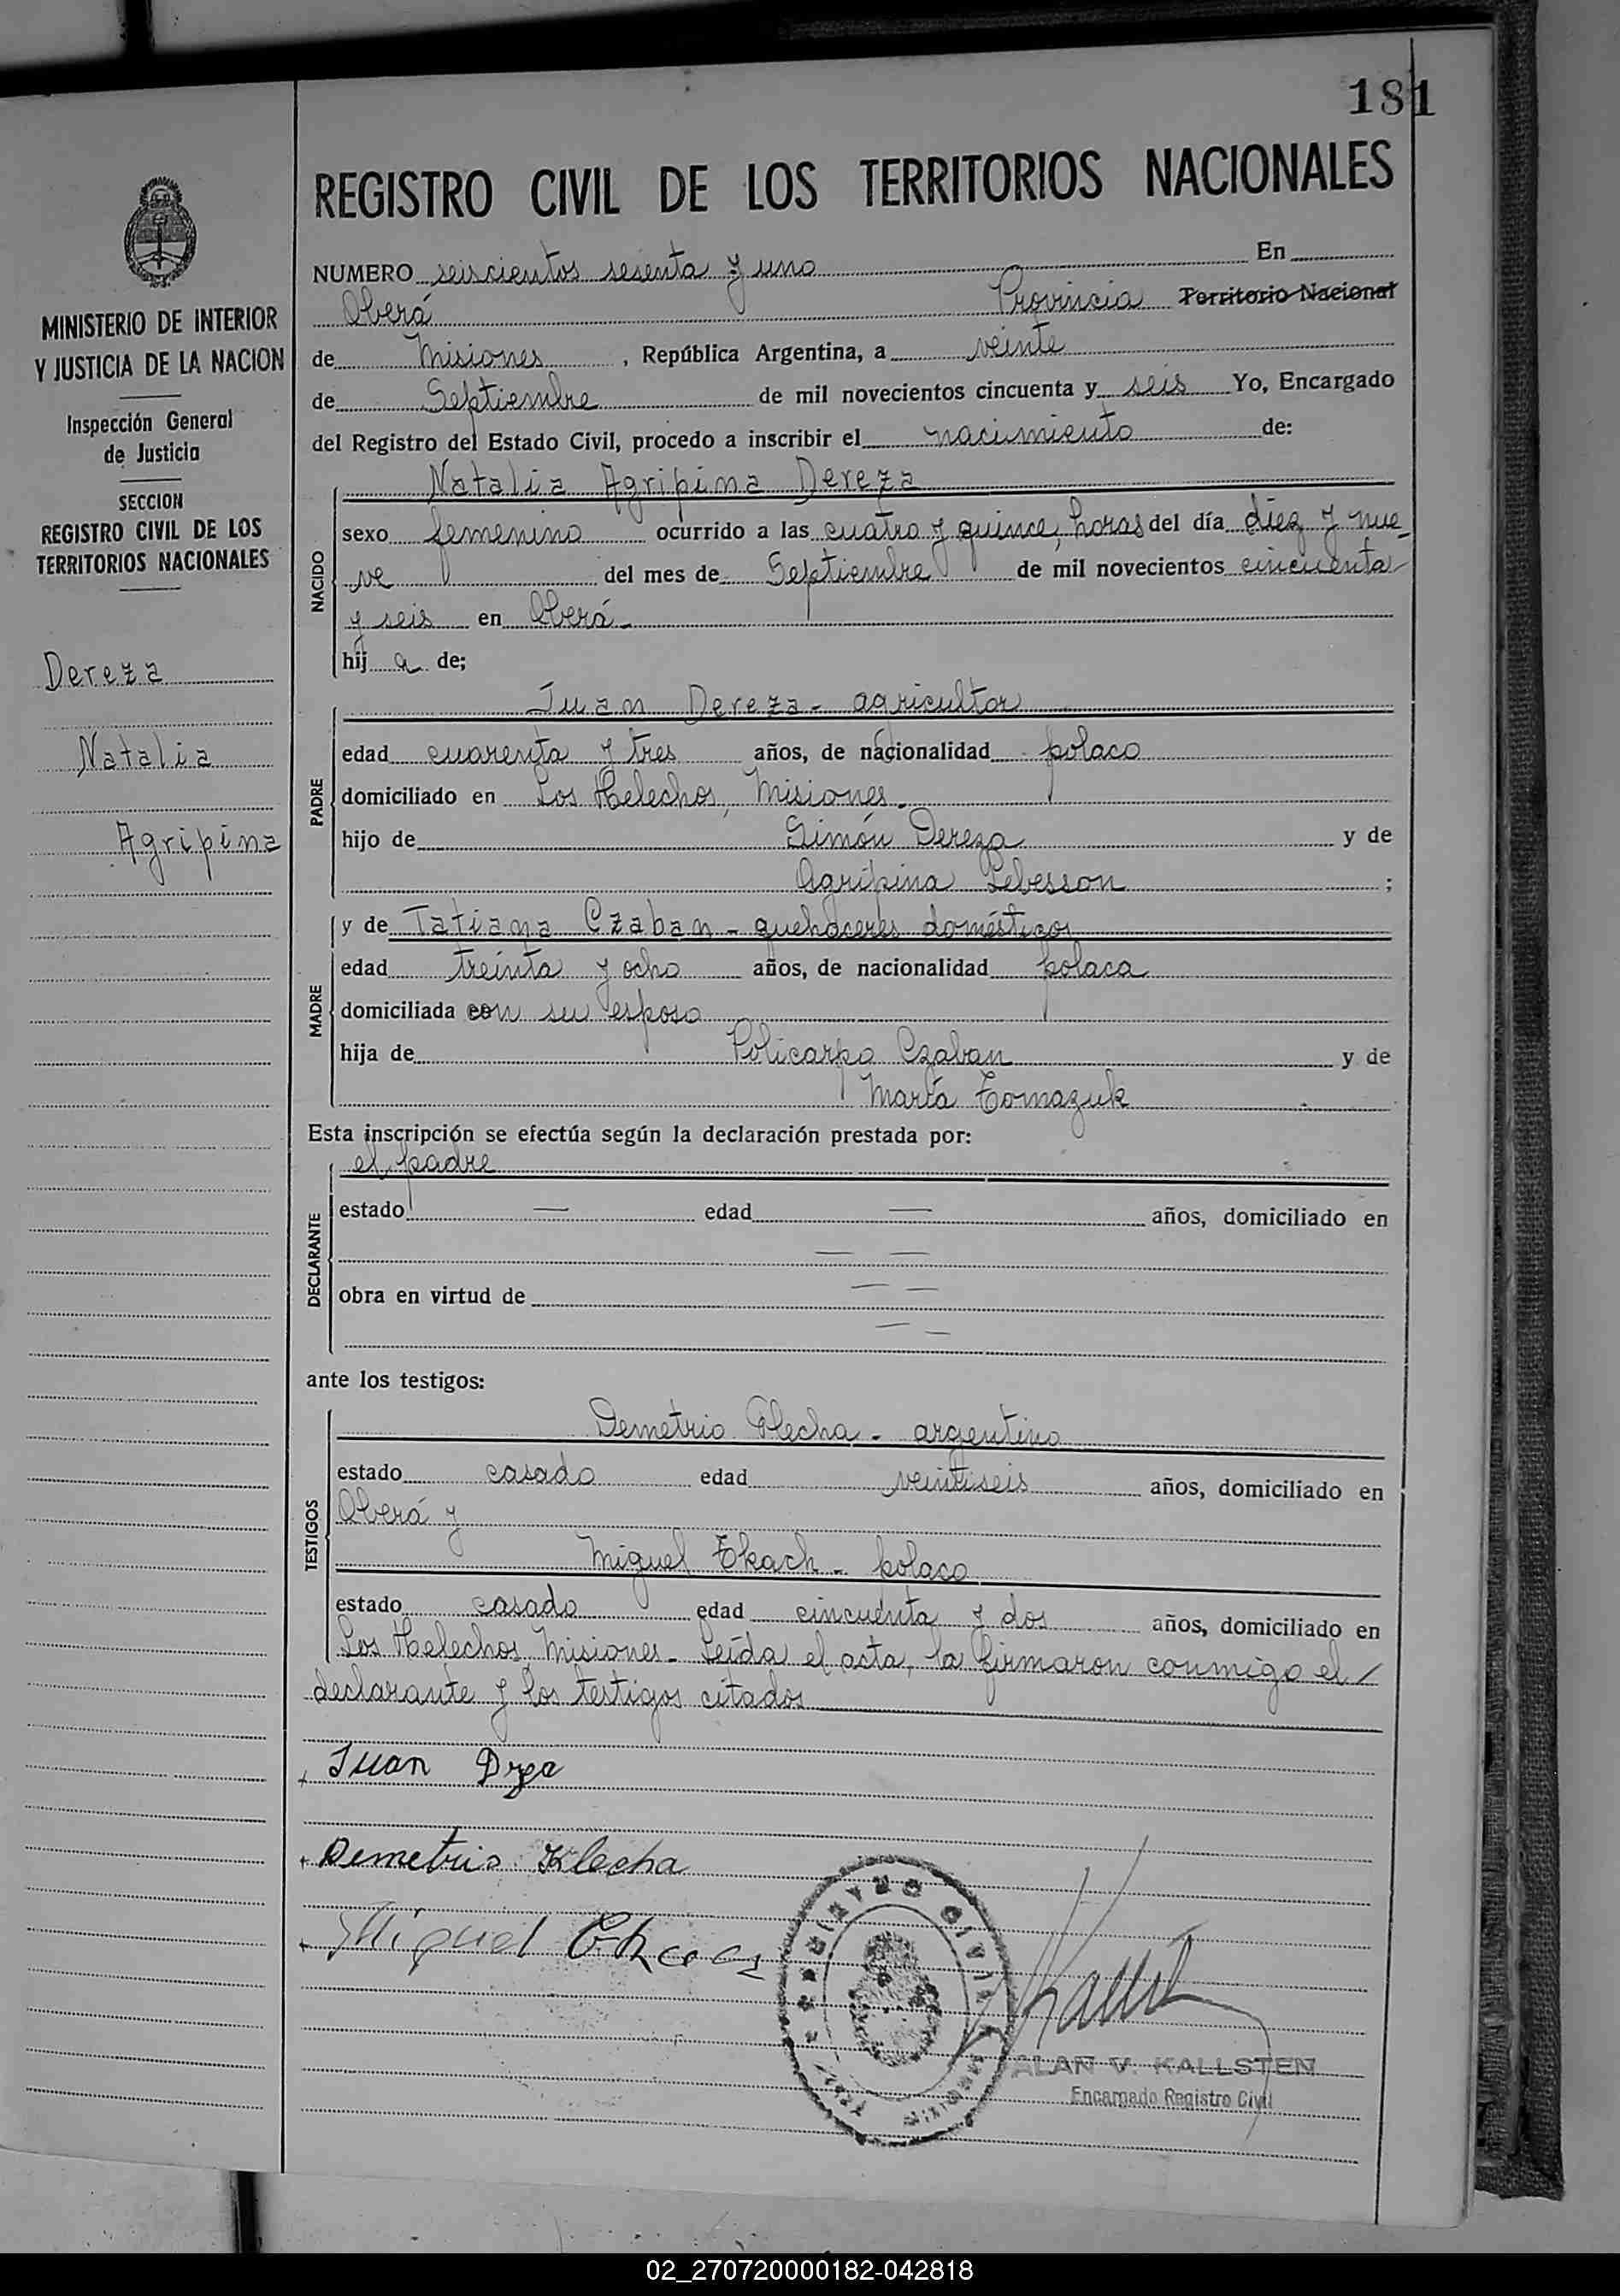 181
REGISTRO CIVIL DE LOS TERRITORIOS NACIONALES
MINISTERIO DE INTERIOR
Y JUSTICIA DE LA NACION
Inspección General
de Justicia
SECCION
REGISTRO CIVIL DE LOS
TERRITORIOS NACIONALES
Dereza
Natalia
Agripina
NUMERO seiscientos sesenta y uno En
Oberá Provincia Territorio Nacional
de Misiones, República Argentina, a veinte
de Septiembre de mil novecientos cincuenta y seis Yo, Encargado
del Registro del Estado Civil, procedo a inscribir el nacimiento de:
NACIDO
Natalia Agripina Dereza
sexo femenino ocurrido a las cuatro y quince, horas del día diez y nue-
ve del mes de Septiembre de mil novecientos cincuenta
y seis en Oberá-
hij a de;
PADRE
Juan Dereza - agricultor
edad cuarenta y tres años, de nacionalidad polaco
domiciliado en Los Helechos, Misiones.
hijo de Simón Dereza y de
Agripina Lebesson ;
MADRE
y de Tatiana Czaban - quehaceres domésticos
edad treinta y ocho años, de nacionalidad polaca
domiciliada con su esposo
hija de Policarpo Czaban y de
Marta Tomazuk
Esta inscripción se efectúa según la declaración prestada por:
DECLARANTE
el padre
estado — edad — años, domiciliado en
— —
obra en virtud de — —
— —
ante los testigos:
TESTIGOS
Demetrio Klecha - argentino
estado casado edad veintiseis años, domiciliado en
Oberá y
Miguel Tkach - polaco
estado casado edad cincuenta y dos años, domiciliado en
Los Helechos, Misiones- Leída el acta, la firmaron conmigo el /
declarante y los testigos citados
Juan
Demetrio Klecha
Miguel
REGISTRO CIVIL
ALAN V. KALLSTEN
Encargado Registro Civil
02_270720000182-042818